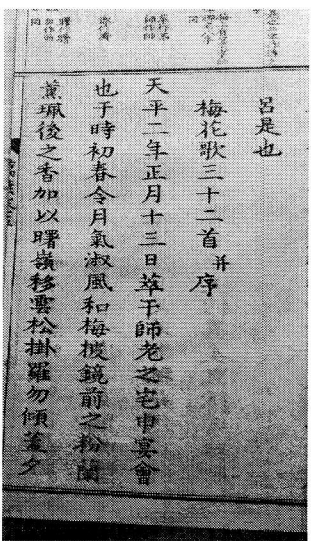 呂是也
梅花歌三十二首并序
天平二年正月十三日萃于師老之宅申宴會
也于時初春令月氣淑風和梅披鏡前之粉蘭
薫珮後之香加以曙嶺移雲松掛羅勿傾盖夕